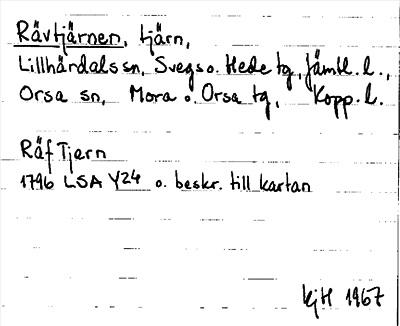 Rävtjärnen, tjärn,
Lillhärdals sn, Svegs o. Hede tg, Jämtl. l.,
Orsa sn, Mora o. Orsa tg, Kopp. l.
Räf Tjern
1796 LSA Y24 o. beskr. till kartan
kjH 1967